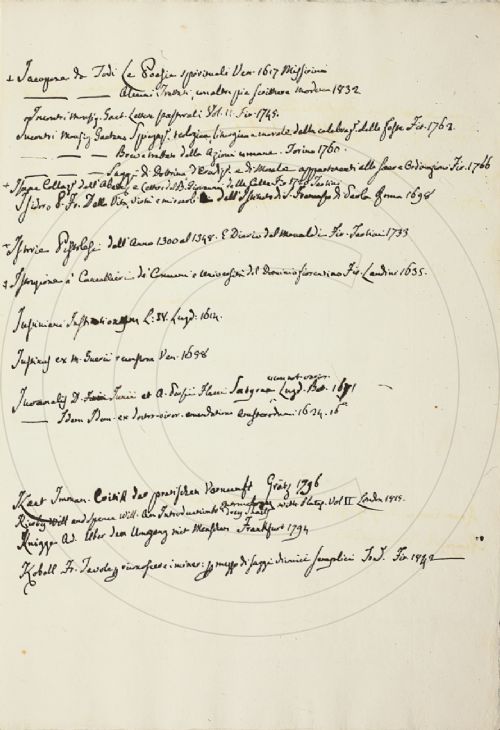 + Jacopone da Todi Le Poesie spirituali Ven. 1617 Misserini
— — Alcuni Trattati, con altre pie scritture Modena 1832
Incontri Monsig. Gaet. Lettere pastorali Vol. 1. Fir. 1745.
Incontri Monsig. Gaetano Spiegaz. teologica, liturgica e morale della celebraz. delle feste Fir. 1762.
— — Breve trattato delle Azioni umane. Torino 1760.
— — Saggi di Dottrina d'Erudiz. e di Morale appartenenti alle Sacre Ordinazioni Fir. 1766
dell' Abate Lettere di D. Giovanni delle Celle Fir. 1720 Tartini
Isidro P. Fr. Della Vita, virtù e miracoli dell' Istituto di S. Francesco di Paola Roma 1698
+ Istorie Pistolesi dall' Anno 1300 al 1348. E Diario del Monaldi Fir. Tartini 1733
+ Istruzione a' Cancellieri de' Comuni e Università del Dominio fiorentino Fir. Landini 1635.
Justiniani Institutionum L: IV. Lugd. 1614.
Justinus ex M. Ven. 1698
Juvenalis D. Junii et A. Persii Flacci Satyrae cum not. varior. Lugd. Bat. 1671
— Idem Idem. ex doctor. viror. emendatione Amsterodami. 1634. 16°
Kant Imman. Critik der pratischen Vernunft Grätz 1796
Kirby Will. and Spence Will. An Introduction to with Plates. Vol II. London 1815.
Knigge Ad. Über den Umgang mit Menschen Frankfurt 1794
Kobell Fr. Tavole p. riconoscere i miner: p. mezzo di saggi chimici semplici Trad. Fir. 1842